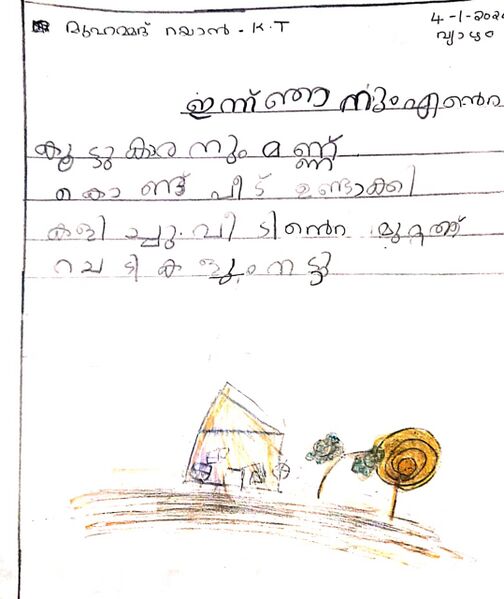 മുഹമ്മദ് റയാൻ - K.T
4-1-202
വ്യാഴം
ഇന്ന് ഞാനും എന്റെ
കൂട്ടുകാരനും മണ്ണ്
കൊണ്ട് വീട് ഉണ്ടാക്കി
കളിച്ചു. വീടിന്റെ മുറ്റത്ത്
ചെടികളും നട്ടു